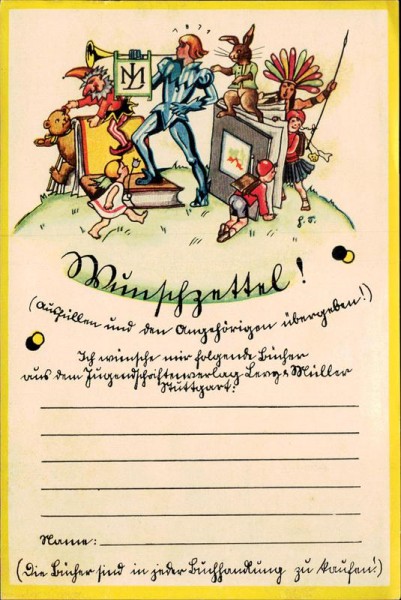 1871
LM
Wunschzettel!
(Ausfüllen und den Angehörigen übergeben!)
Ich wünsche mir folgende Bücher
aus dem Jugendschriftenverlag Levy & Müller
Stuttgart:
Name:
(Die Bücher sind in jeder Buchhandlung zu kaufen!)